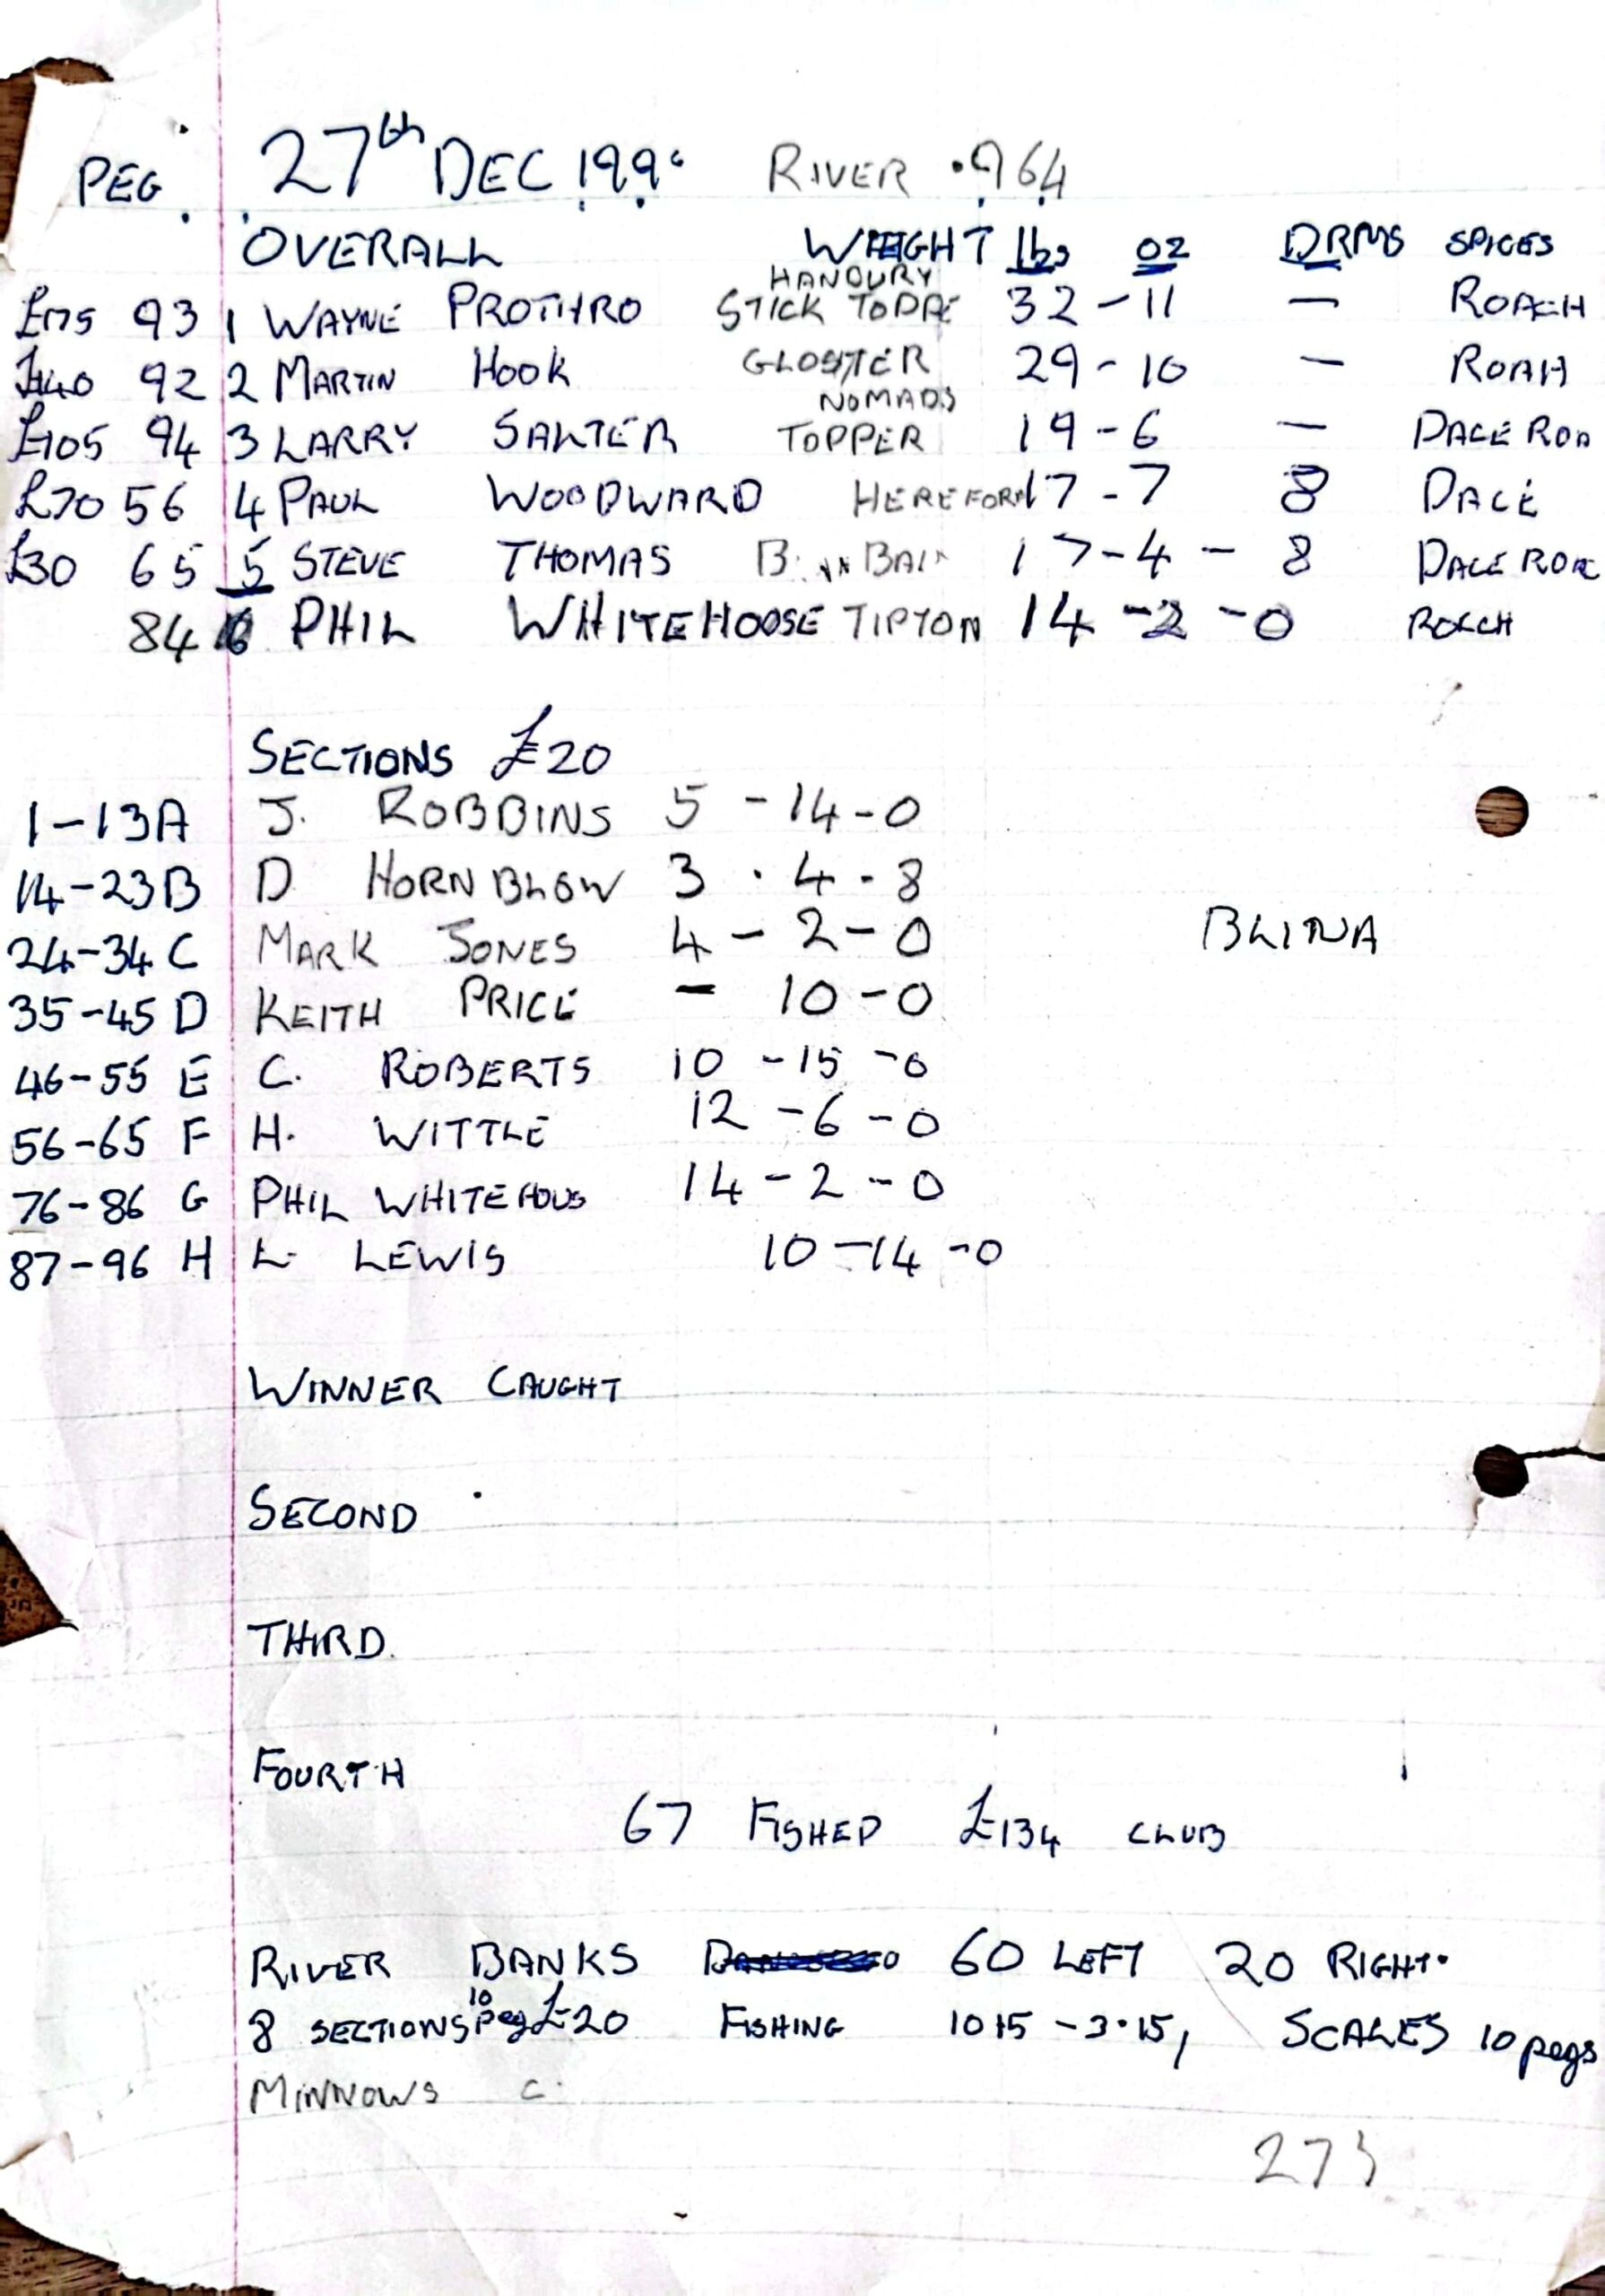 PEG 27th DEC 199 RIVER .964
OVERALL WEIGHT lbs oz DRMS SPICES
HANDURY
£175 93 1 WAYNE PROTHRO STICK TOPPE 32 - 11 — ROACH
£140 92 2 MARTIN HOOK GLOSTER 29 - 10 — ROAH
NOMADS
£105 94 3 LARRY SALTER TOPPER 19 - 6 — DACE ROA
£70 56 4 PAUL WOODWARD HEREFORD 17 - 7 8 DACE
£30 65 5 STEVE THOMAS 17 - 4 - 8 DACE ROA
84 6 PHIL WHITEHOOSE TIPTON 14 - 2 - 0 ROACH
SECTIONS £20
1-13A J. ROBBINS 5 - 14 - 0
14-23B D HORNBLOW 3 . 4 - 8
24-34 C MARK JONES 4 - 2 - 0 BLINA
35-45 D KEITH PRICE - 10 - 0
46-55 E C. ROBERTS 10 - 15 - 0
56-65 F H. WITTLE 12 - 6 - 0
76-86 G PHIL WHITEHOUS 14 - 2 - 0
87-96 H L. LEWIS 10 - 14 - 0
WINNER CAUGHT
SECOND
THIRD.
FOURTH
67 FISHED £134 CLUB
RIVER BANKS 60 LEFT 20 RIGHT.
8 SECTIONS 10 peg £20 FISHING 10 15 - 3.15, SCALES 10 pegs
MINNOWS C.
273